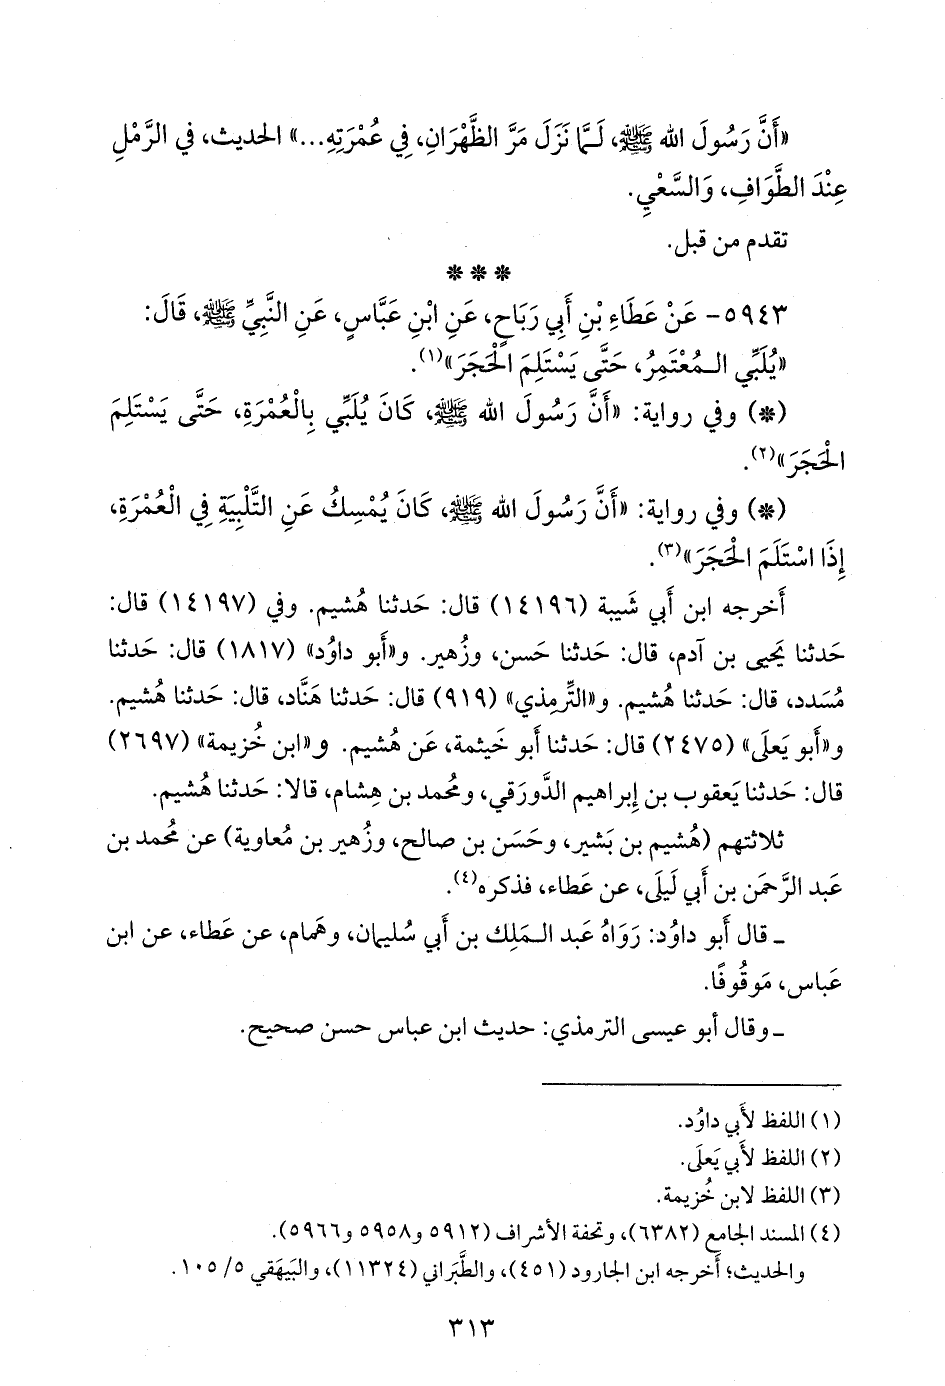 «أَنَّ رَسُولَ الله ﷺ، لَـمَّا نَزَلَ مَرَّ الظَّهْرَانِ، فِي عُمْرَتِهِ...» الحديث، في الرَّمْلِ
عِنْدَ الطَّوَافِ، وَالسَّعْيِ.
تقدم من قبل.
***
٥٩٤٣- عَنْ عَطَاءِ بْنِ أَبِي رَبَاحٍ، عَنِ ابْنِ عَبَّاسٍ، عَنِ النَّبِيِّ ﷺ، قَالَ:
«يُلَبِّي الـمُعْتَمِرُ، حَتَّى يَسْتَلِمَ الْحَجَرَ»(١).
(*) وفي رواية: «أَنَّ رَسُولَ الله ﷺ، كَانَ يُلَبِّي بِالْعُمْرَةِ، حَتَّى يَسْتَلِمَ
الْحَجَرَ»(٢).
(*) وفي رواية: «أَنَّ رَسُولَ الله ﷺ، كَانَ يُمْسِكُ عَنِ التَّلْبِيَةِ فِي الْعُمْرَةِ،
إِذَا اسْتَلَمَ الْحَجَرَ»(٣).
أَخرجه ابن أَبي شَيبة (١٤١٩٦) قال: حَدثنا هُشيم. وفي (١٤١٩٧) قال:
حَدثنا يَحيى بن آدم، قال: حَدثنا حَسن، وزُهير. و«أَبو داوُد» (١٨١٧) قال: حَدثنا
مُسَدد، قال: حَدثنا هُشيم. و«التِّرمِذي» (٩١٩) قال: حَدثنا هَنَّاد، قال: حَدثنا هُشيم.
و«أَبو يَعلَى» (٢٤٧٥) قال: حَدثنا أَبو خَيثمة، عَن هُشيم. و«ابن خُزيمة» (٢٦٩٧)
قال: حَدثنا يَعقوب بن إِبراهيم الدَّورَقي، ومُحمد بن هِشام، قالا: حَدثنا هُشيم.
ثلاثتهم (هُشيم بن بَشير، وحَسَن بن صالح، وزُهير بن مُعاوية) عن مُحمد بن
عَبد الرَّحمَن بن أَبي لَيلَى، عن عَطاء، فذكره(٤).
ـ قال أَبو داوُد: رَوَاهُ عَبد الـمَلِك بن أَبي سُليمان، وهَمام، عن عَطاء، عن ابن
عَباس، مَوقُوفًا.
ـ وقال أَبو عيسى الترمذي: حديث ابن عباس حسن صحيح.
(١) اللفظ لأَبي داوُد.
(٢) اللفظ لأَبي يَعلَى.
(٣) اللفظ لابن خُزيمة.
(٤) المسند الجامع (٦٣٨٢)، وتحفة الأشراف (٥٩١٢ و٥٩٥٨ و٥٩٦٦).
والحديث؛ أَخرجه ابن الجارود (٤٥١)، والطَّبَراني (١١٣٢٤)، والبَيهَقي ٥/ ١٠٥.
٣١٣